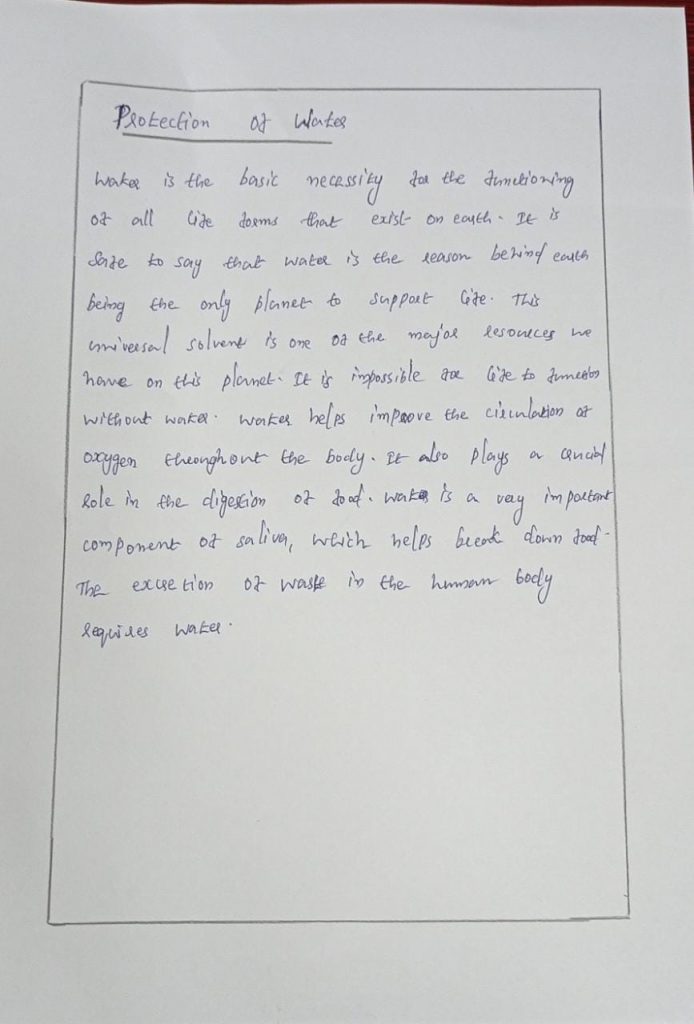 Protection of Water
Water is the basic necessity for the functioning
of all life forms that exist on earth. It is
safe to say that water is the reason behind earth
being the only planet to support life. This
universal solvent is one of the major resources we
have on this planet. It is impossible for life to function
without water. Water helps improve the circulation of
oxygen throughout the body. It also plays a crucial
role in the digestion of food. Water is a very important
component of saliva, which helps break down food.
The excretion of waste in the human body
requires water.